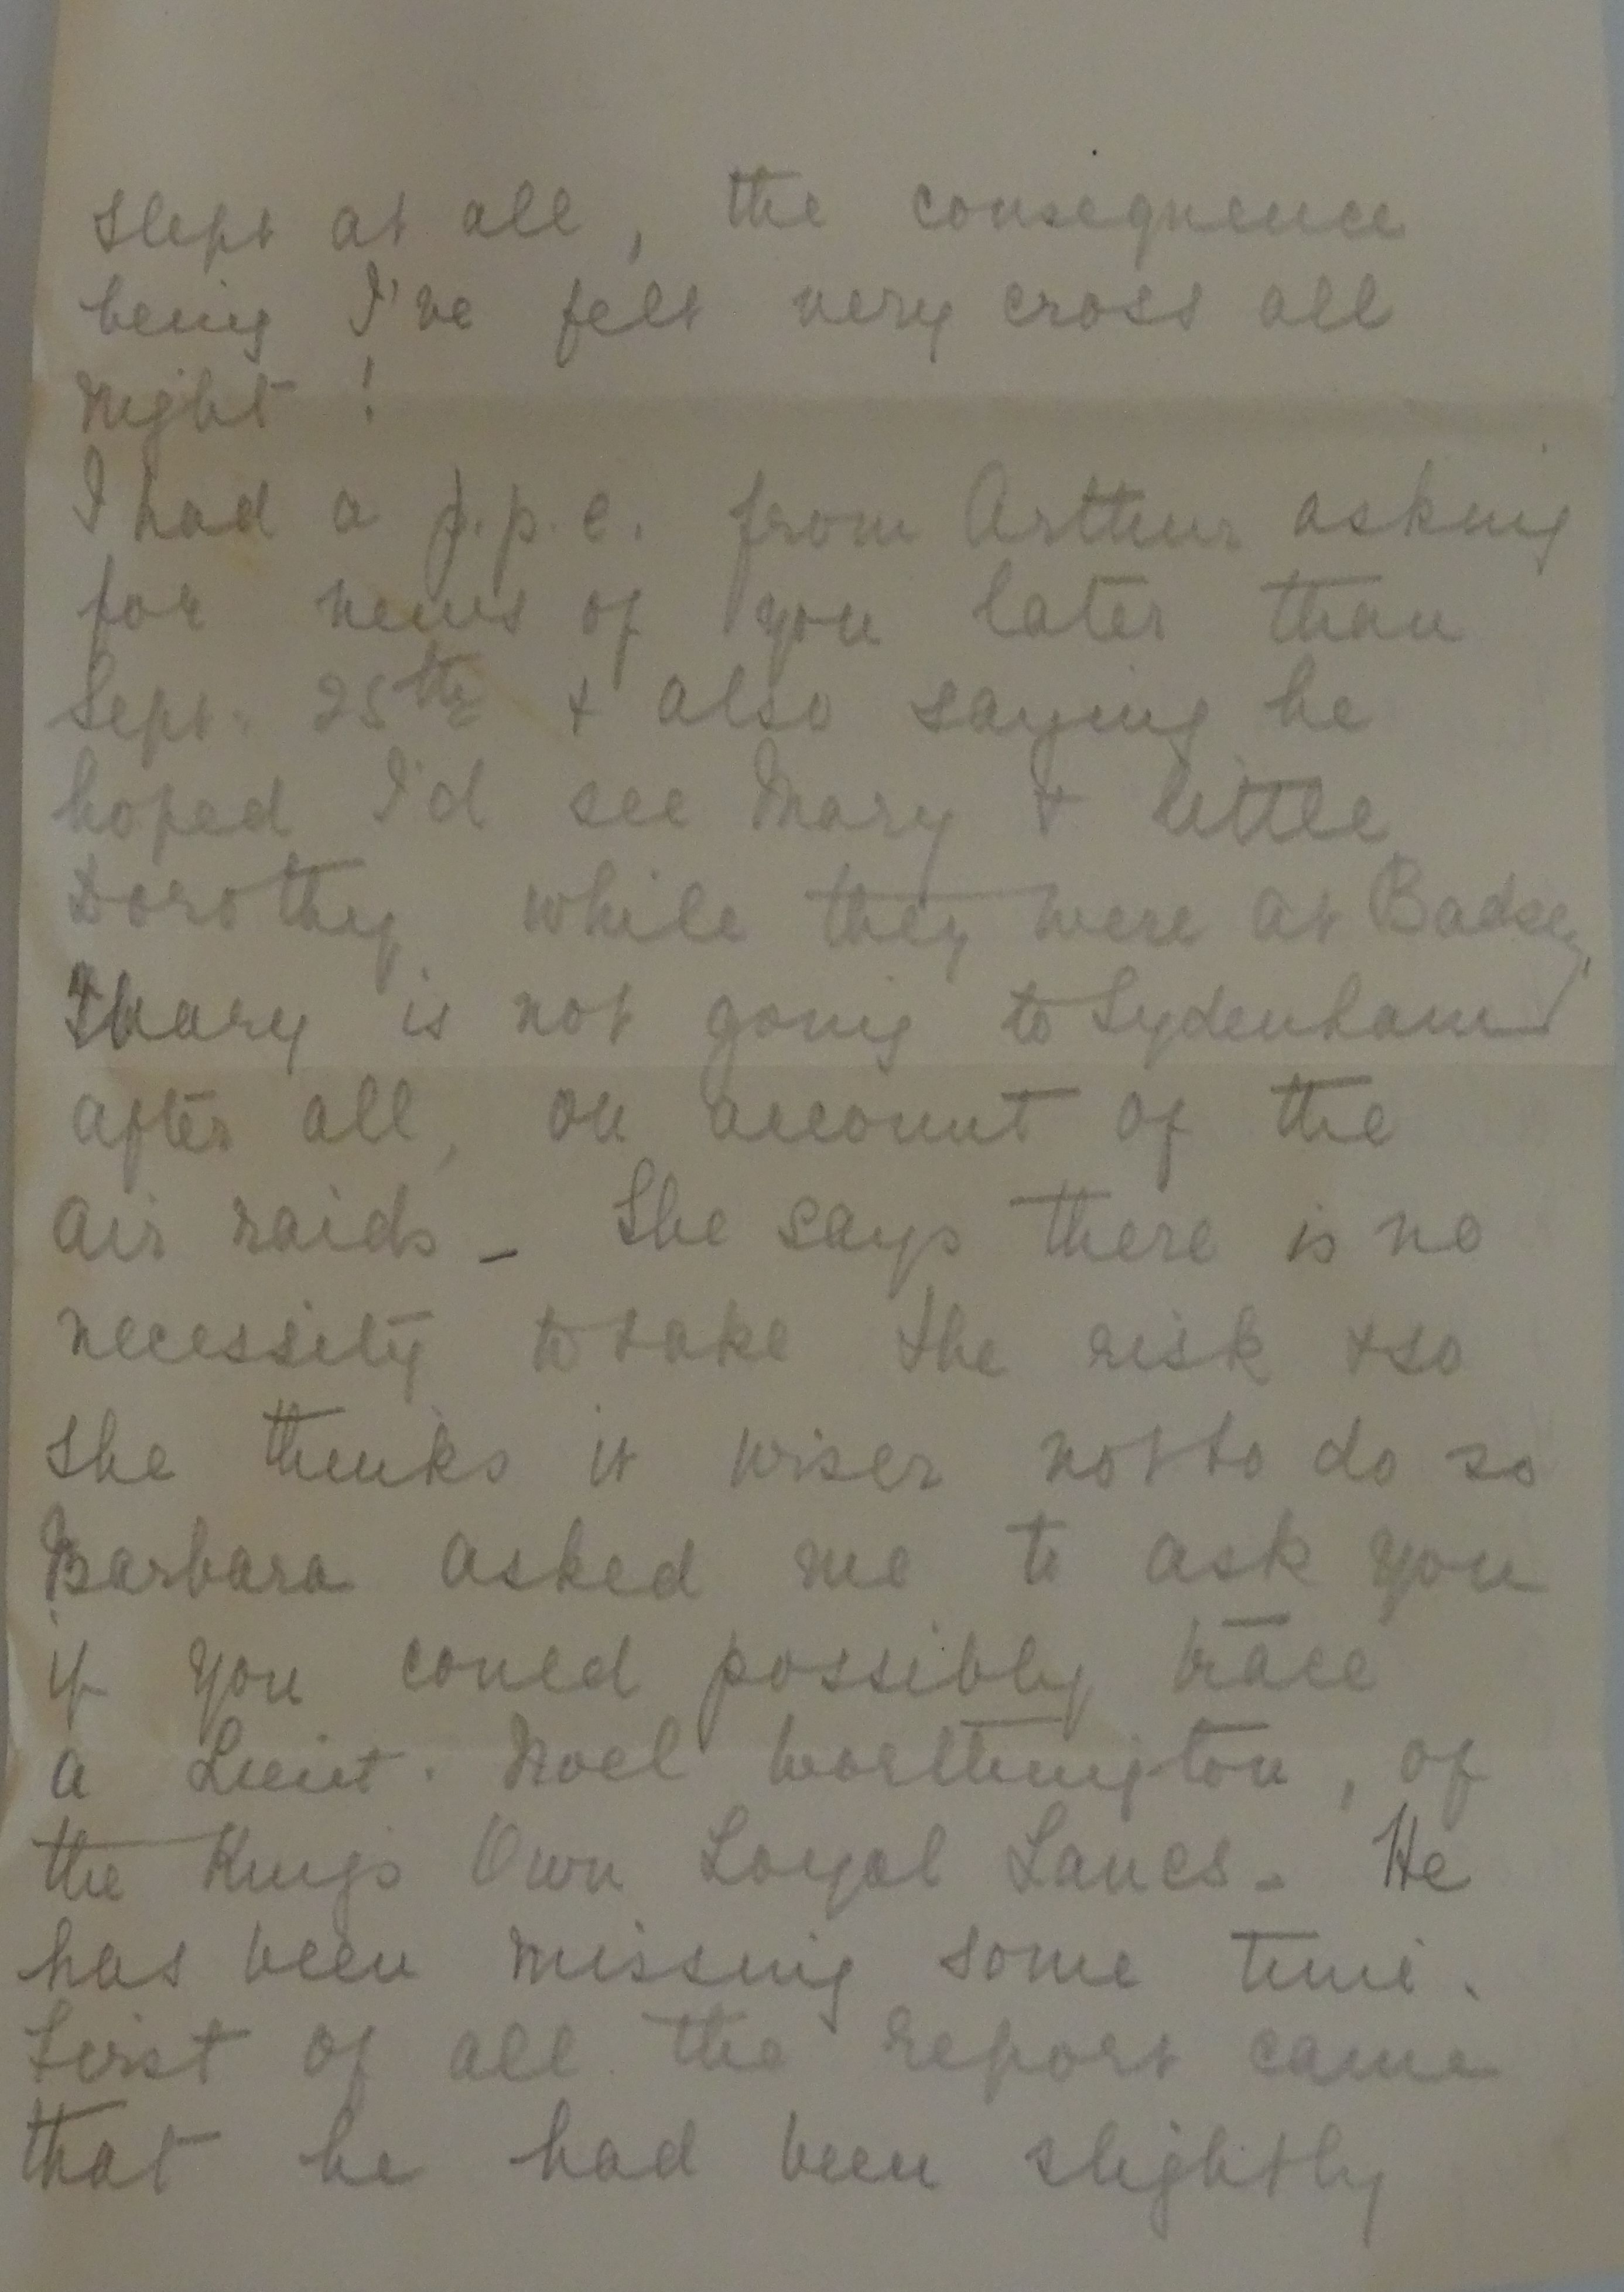 slept at all, the consequence
being I've felt very cross all
night!
I had a f.p.c. from Arthur asking
for news of you later than
Sept. 25th & also saying he
hoped I'd see Mary & little
Dorothy while they were at Badsey,
Mary is not going to Sydenham
after all, on account of the
air raids - She says there is no
necessity to take the risk & so
she thinks it wiser not to do so
Barbara asked me to ask you
if you could possibly trace
a Lieut. Noel Worthington, of
the Kings Own Loyal Lancs - He
has been missing some time.
First of all the report came
that he had been slightly